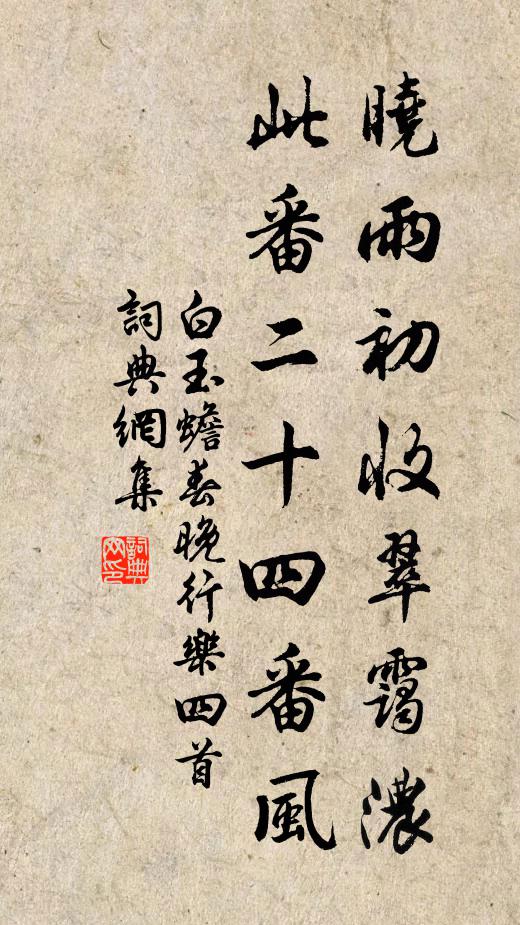 曉雨初收翠靄濃
此番二十四番風
白玉蟾春晚行樂四首
詞典網集
詞典網印